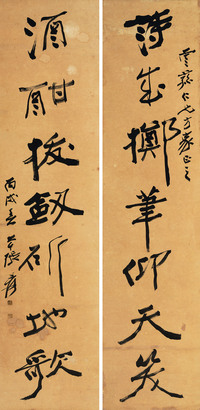 仁兄方家正之
詩成擲筆仰天笑
酒酣拔劍斫地歌
丙戌 爰